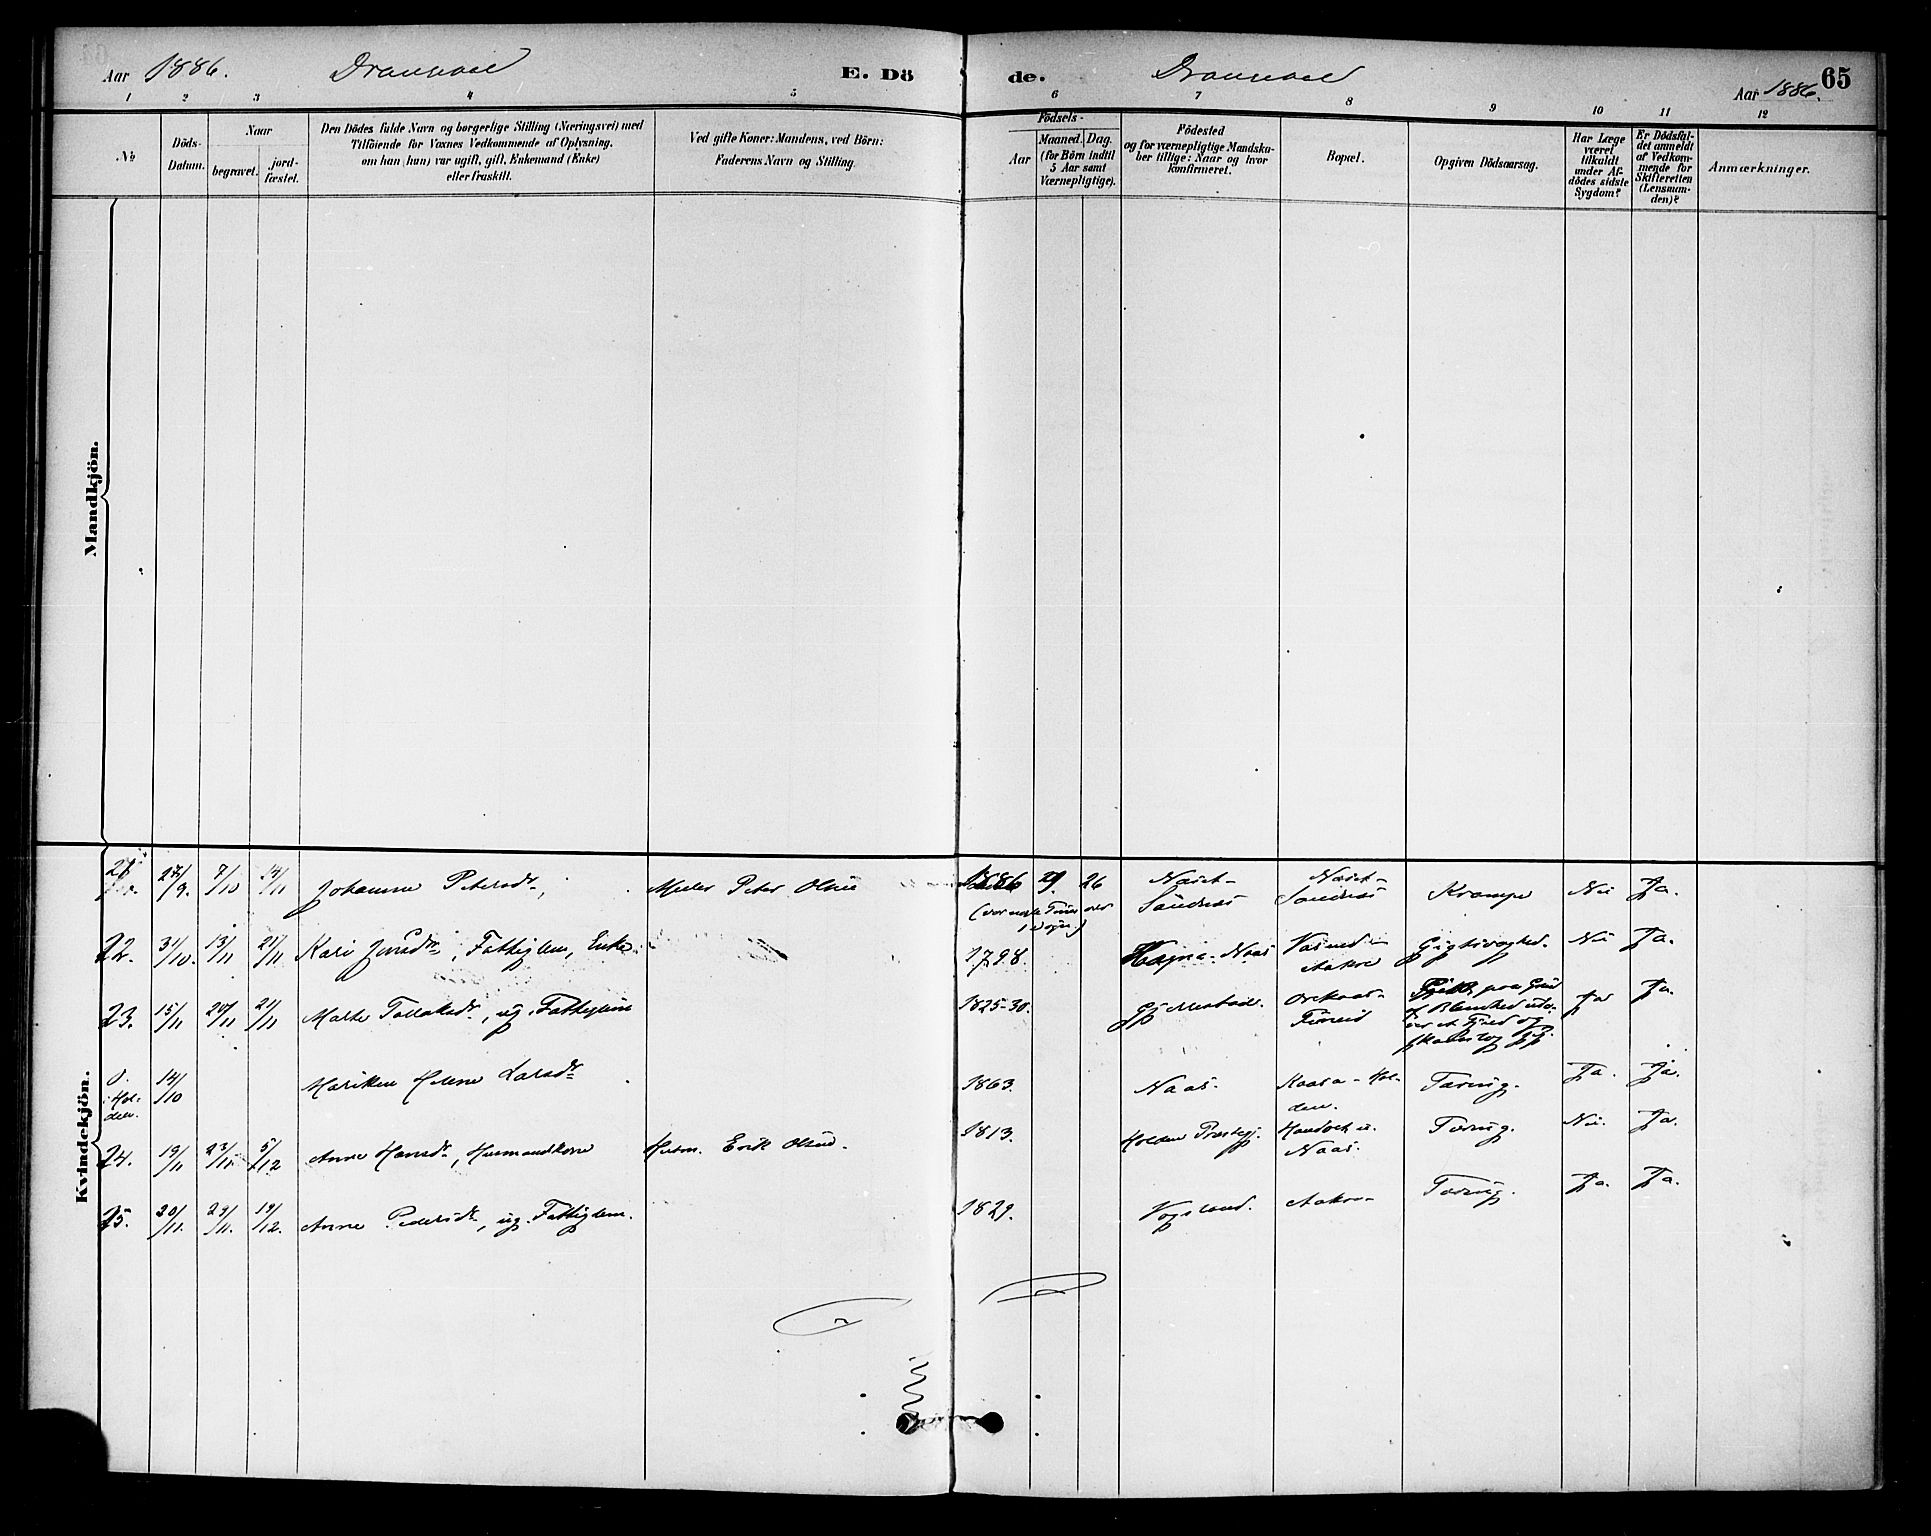 Aar 1886. Drangedal E. Dö
de. Drangedal Aar 1886. 65
1 2 3 4 5 6 7 8 9 10 11 12
№
Döds-
Datum.
Naar
begravet.
jord-
fæstet.
Den Dödes fulde Navn og borgerlige Stilling (Næringsvei) med
Tilföiende for Voxnes Vedkommende af Oplysning,
om han (hun) var ugift, gift, Enkemand (Enke)
eller fraskilt.
Ved gifte Koner: Mandens, ved Börn:
Faderens Navn og Stilling.
Födsels-
Aar
Maaned. Dag.
(for Börn indtil
5 Aar samt
Værnepligtige).
Födested
og for værnepligtige Mandska-
ber tillige: Naar og hvor
konfirmeret.
Bopæl.
Opgiven Dödsaarsag.
Har Læge
været
tilkaldt
under Af-
dödes sidste
Sygdom?
Er Dödsfal-
det anmeldt
af Vedkom-
mende for
Skifteretten
(Lensman-
den)?
Anmærkninger.
Mandkjön.
Kvindekjön.
21 7/10 14/11 Johanne Petersdr, Peter Olsen 1886 9. 26 Sandnæs Sandnæs Krampe Nei Ja.
22. 31/10. 13/11 21/11 Kari Jonsdr, Fattiglem, Enke. 1798. Naas Aakre Gigtsvaghed. Nei Ja.
23. 15/11 20/11 21/11 Marte Tollaksdr, ug. Fattiglem 1825-30. Ja Ja.
0.
i Hol-
den. 14/10 Mariken Helene Larsdr 1863. Naas. Kaasa - Hol-
den. Tæring. Ja. Ja.
24. 19/11 23/11 5/12 Anne Hansdr, Husmandskone Husm. Erik Olsen. 1813. Holden Præstegj. Naas. Tæring. Nei. Ja.
25. 20/11. 29/11. 19/12. Anne Pedersdr, ug. Fattiglem. 1829. Vogsland. Aakre Tæring. Ja. Ja.